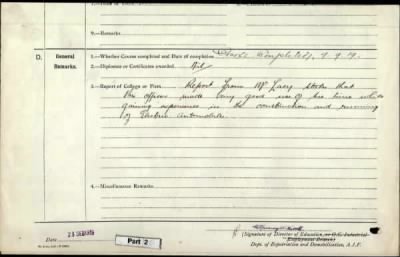 9.—Remarks
D. General Remarks.
1.—Whether Course completed and Date of completion Course Completed, 7.9.19.
2.—Diplomas or Certificates awarded Nil
3.—Report of College or Firm Report from Mr Lacy states that
this officer made very good use of his time while
gaining experience in the construction and running
of Electric automobiles.
4.—Miscellaneous Remarks
Date
Part 2
(Signature of Director of Education, or O.C. Industrial
Employment Branch)
Dept. of Repatriation and Demobilisation, A.I.F.